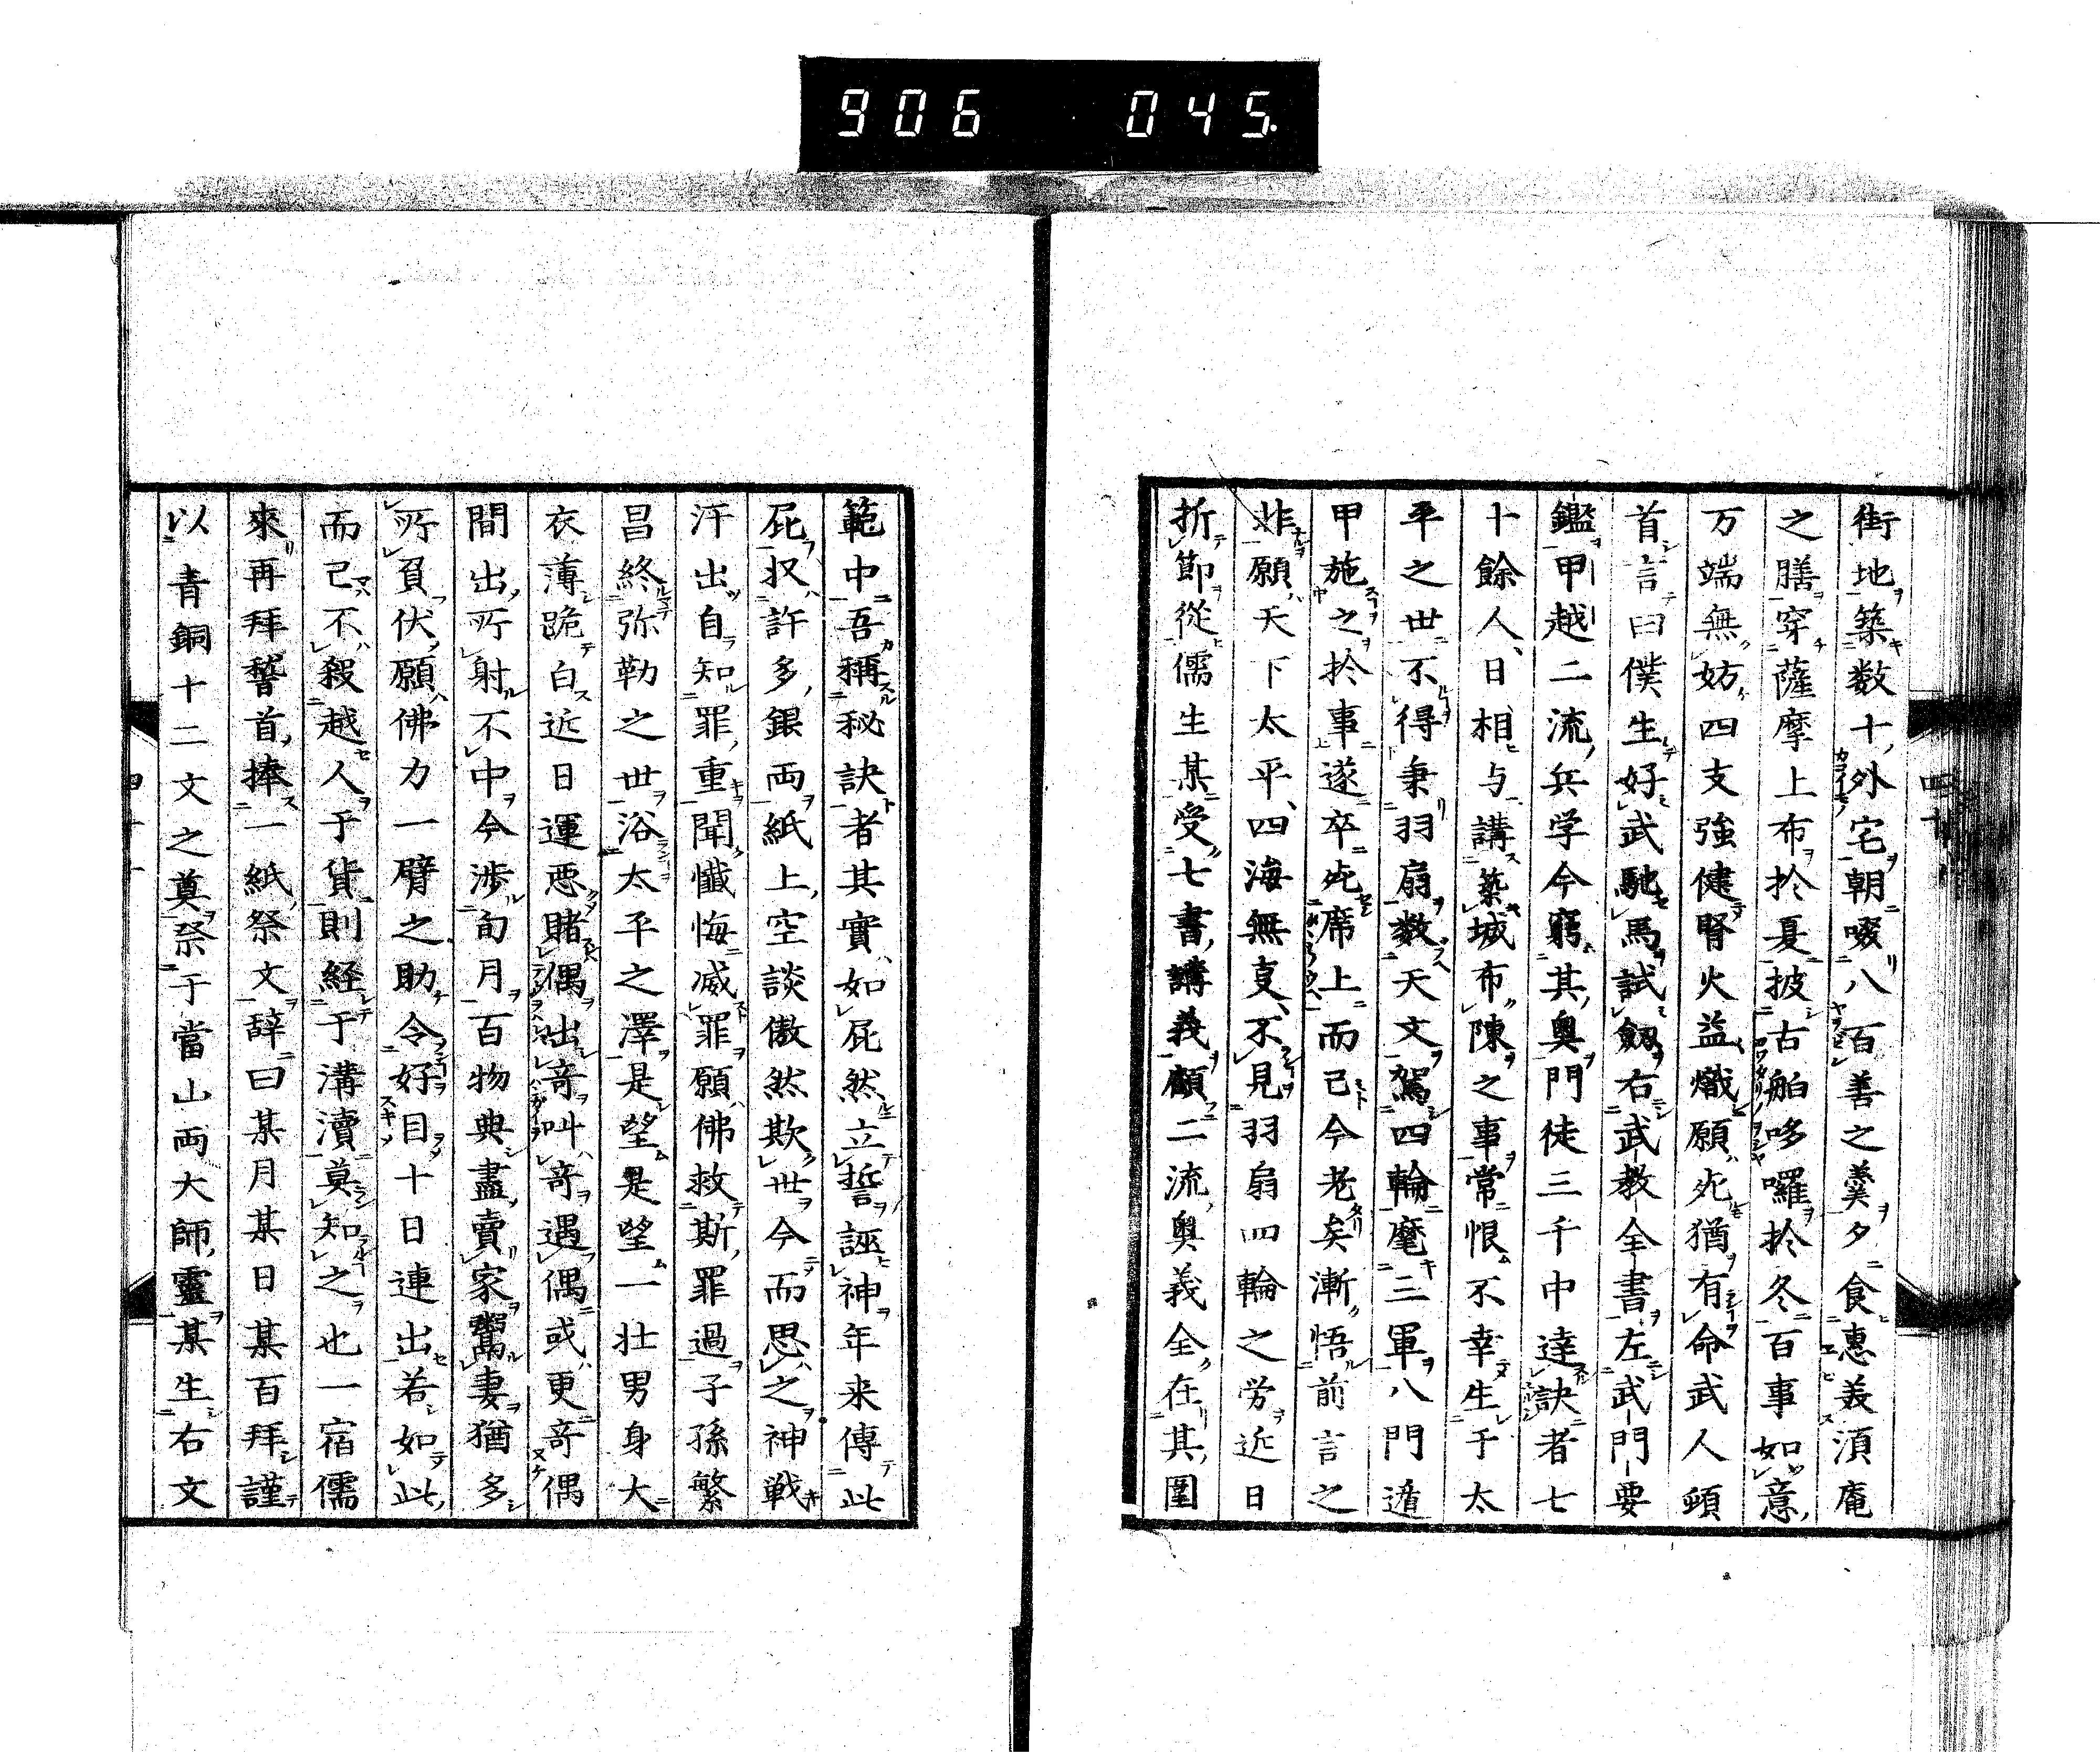 906 045.
街地築数十外宅朝啜八百善之羹夕食惠美須庵
之膳穿薩摩上布於夏披古舶哆囉於冬百事如意
万端無妨四支強健腎火益熾願死猶有命武人頓
首言曰僕生好武馳馬試劔右武教全書左武門要
鑑甲越二流兵学今窮其奥門徒三千中達訣者七
十餘人日相与講築城布陳之事常恨不幸生于太
平之世不得秉羽扇数天文駕四輪麾三軍八門遁
甲施之於事遂卒死席上而已今老矣漸悟前言之
非願天下太平四海無㕝不見羽扇四輪之労近日
折節從儒生某受七書講義顧二流奥義全在其圍
範中吾稱秘訣者其實如屁然立誓誣神年来傳此
屁扠許多銀両紙上空談傲然欺世今而思之神戦
汗出自知罪重聞懺悔滅罪願佛救斯罪過子孫繁
昌終弥勒之世浴太平之澤是望是望一壮男身大
衣薄跪白近日運悪賭偶出竒叫竒遇偶或更竒偶
間出所射不中今渉旬月百物典盡賣家鬻妻猶多
所負伏願佛力一臂之助令好目十日連出若如此
而已不殺越人于貨則経于溝瀆莫知之也一宿儒
來再拜稽首捧一紙祭文辞曰某月某日某百拜謹
以青銅十二文之奠祭于當山両大師靈某生右文